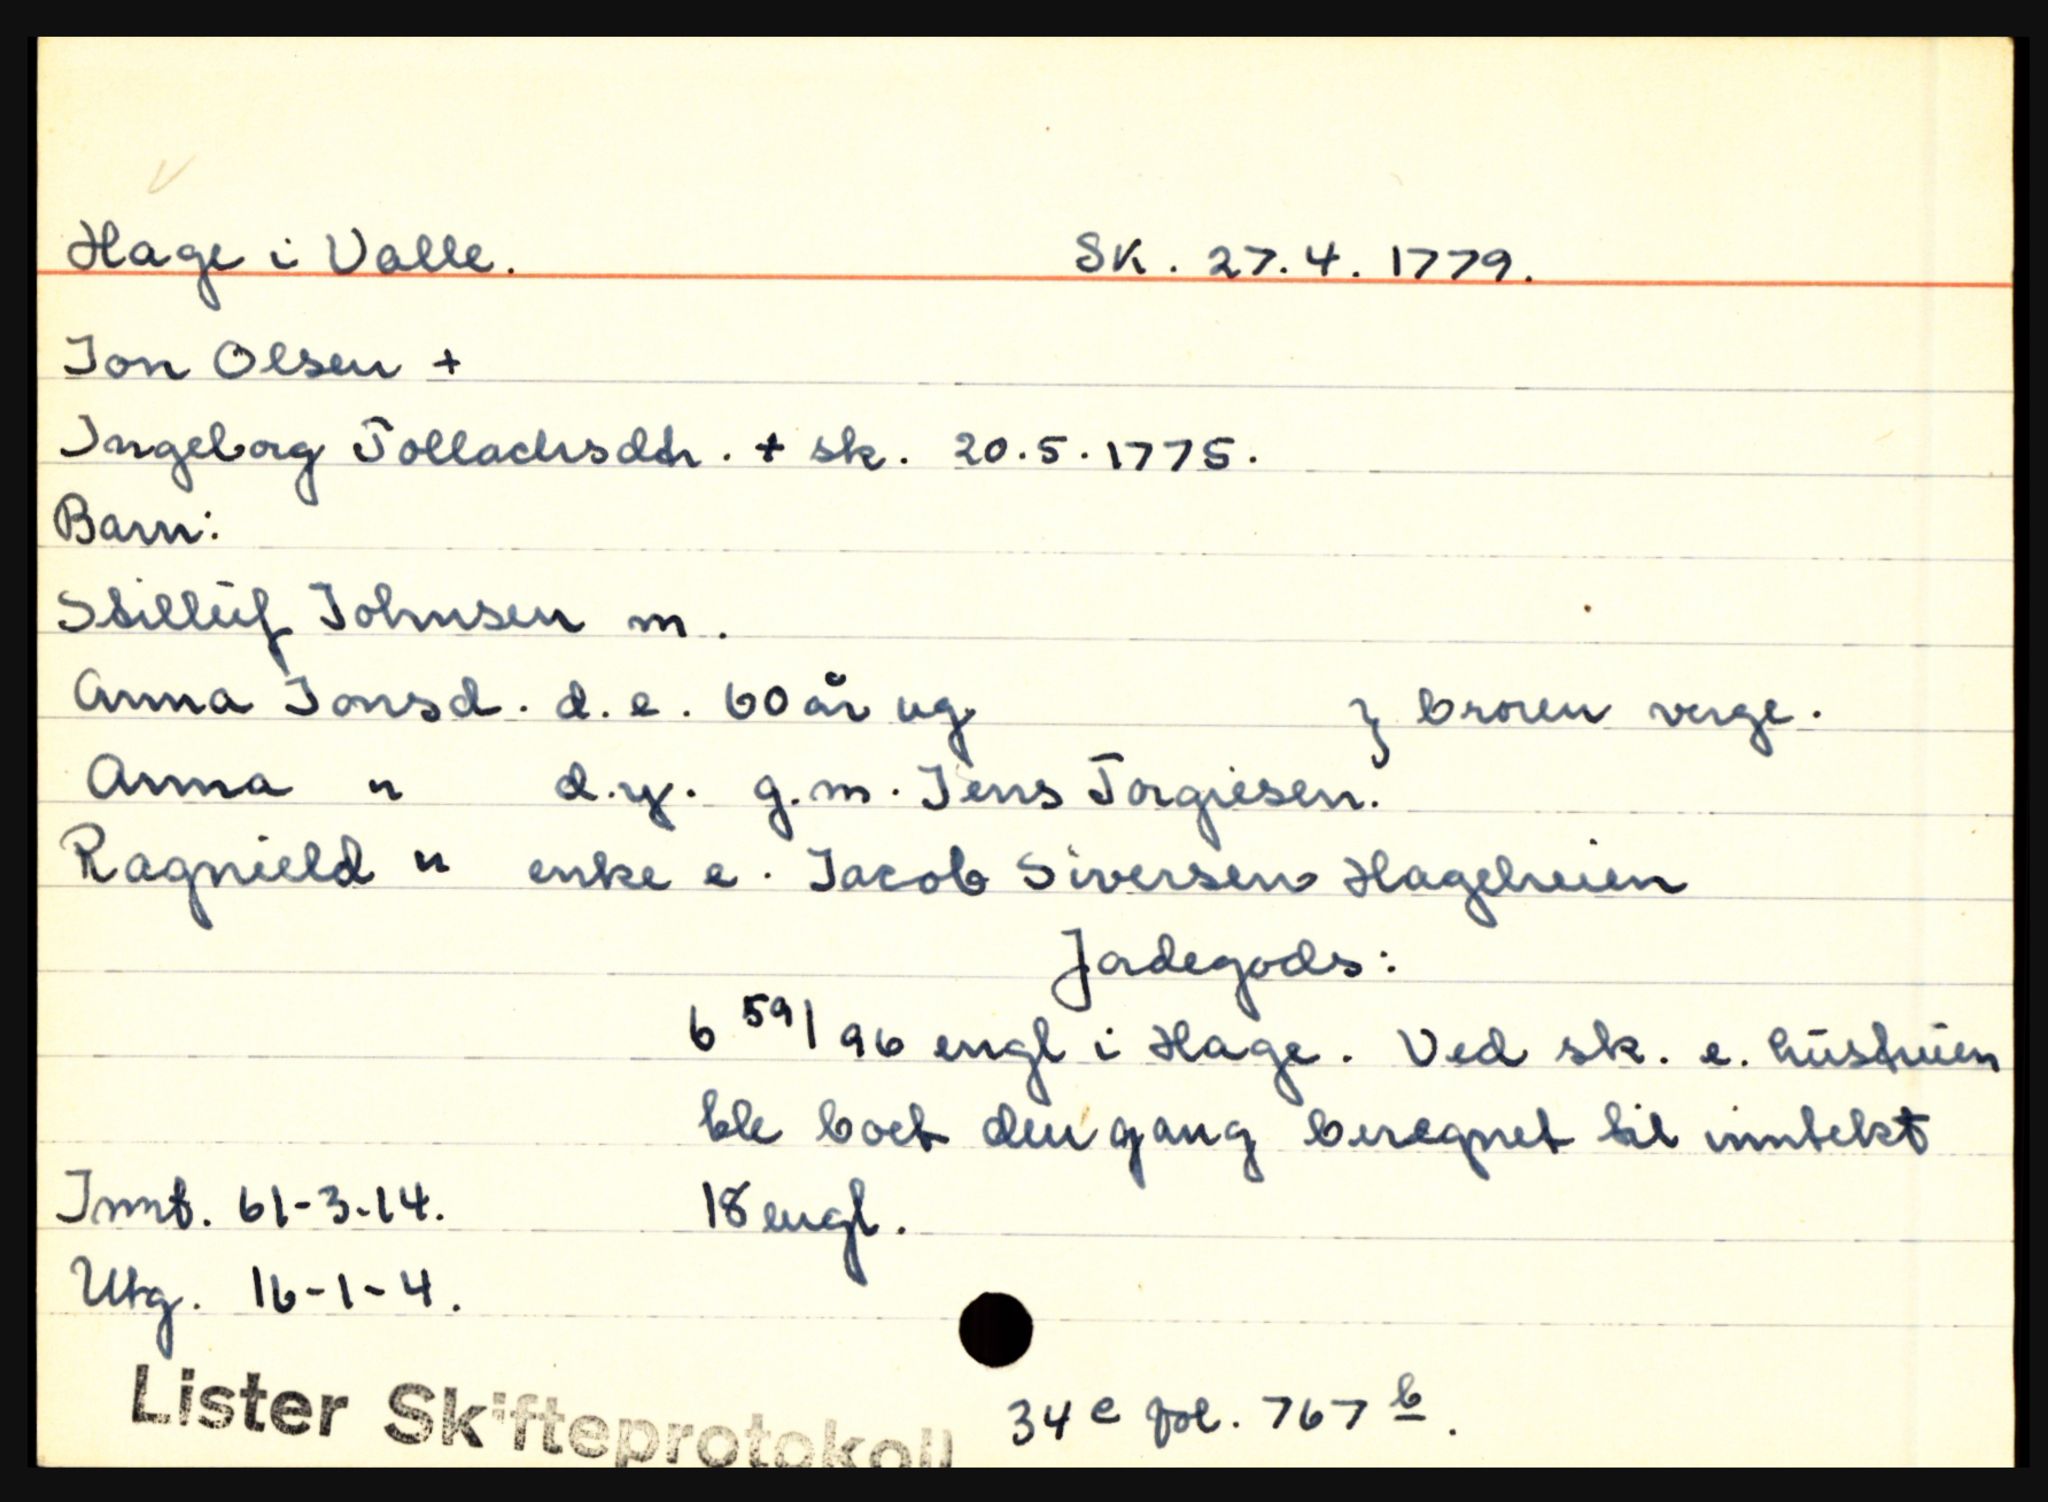 Hage i Valle. SK. 27.4.1779.
Jon Olsen +
Ingeborg Tollachsdtr. + sk. 20.5.1775.
Barn:
Stilluf Johnsen m.
Anna Jonsd. d.e. 60 år ug. } broren verge.
Anna " d.y. g.m. Jens Torgiesen.
Ragnield " enke e. Jacob Siversen Hageheien
Jordegods:
6 59/96 engl i Hage. Ved sk. e. hustruen
ble boet den gang beregnet til inntekt
Innt. 61-3-14. 18 engl.
Utg. 16-1-4.
Lister Skifteprotokoll 34 e fol. 767 b.